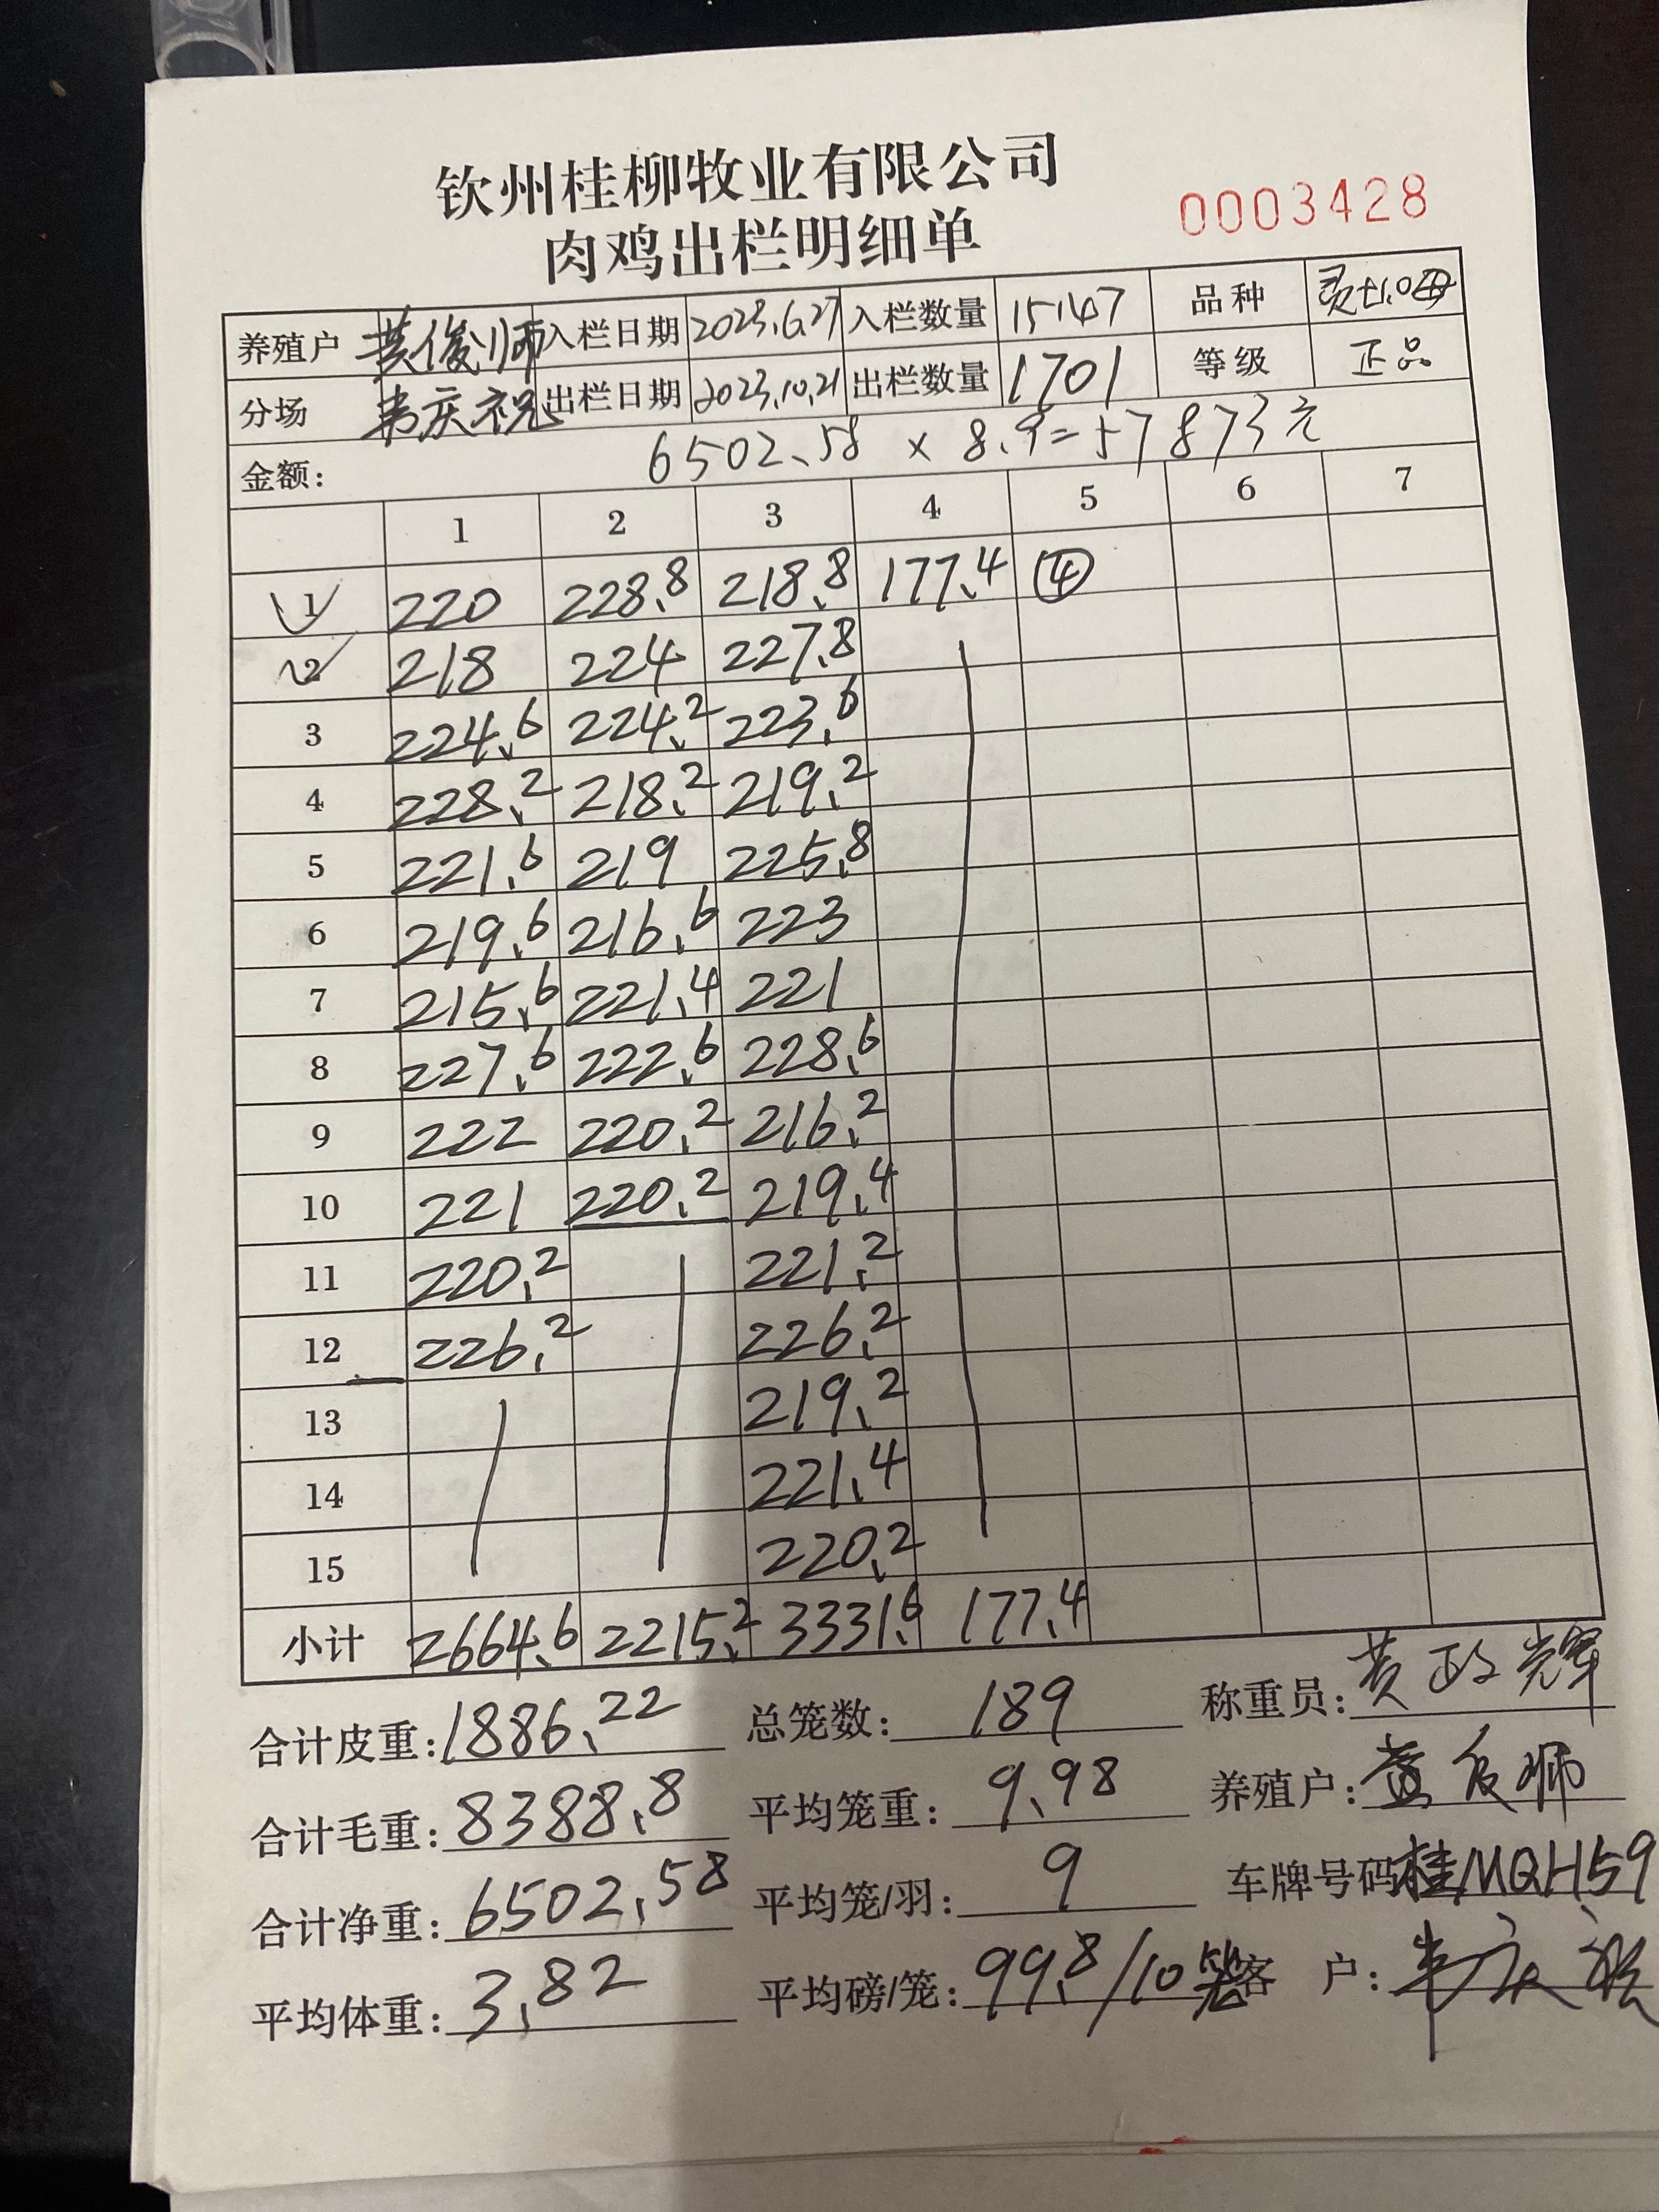 钦州桂柳牧业有限公司
肉鸡出栏明细单
0003428
养殖户 黄俊师 入栏日期 2023.6.27 入栏数量 15147 品种
分场 韦庆祝 出栏日期 2023.10.21 出栏数量 1701 等级 正品
金额: 6502.58 × 8.9=57873元
1 2 3 4 5 6 7
1 220 228.8 218.8 177.4 ④
2 218 224 227.8
3 224.6 224.2 223.6
4 228.2 218.2 219.2
5 221.6 219 225.8
6 219.6 216.6 223
7 215.6 221.4 221
8 227.6 222.6 228.6
9 222 220.2 216.2
10 221 220.2 219.4
11 220.2 221.2
12 226.2 226.2
13 219.2
14 221.4
15 220.2
小计 2664.6 2215.2 3331.6 177.4
合计皮重: 1886.22 总笼数: 189 称重员: 黄政辉
合计毛重: 8388.8 平均笼重: 9.98 养殖户: 黄俊师
合计净重: 6502.58 平均笼/羽: 9 车牌号码 桂MQH59
平均体重: 3.82 平均磅/笼: 99.8/10笼 客 户: 韦庆祝